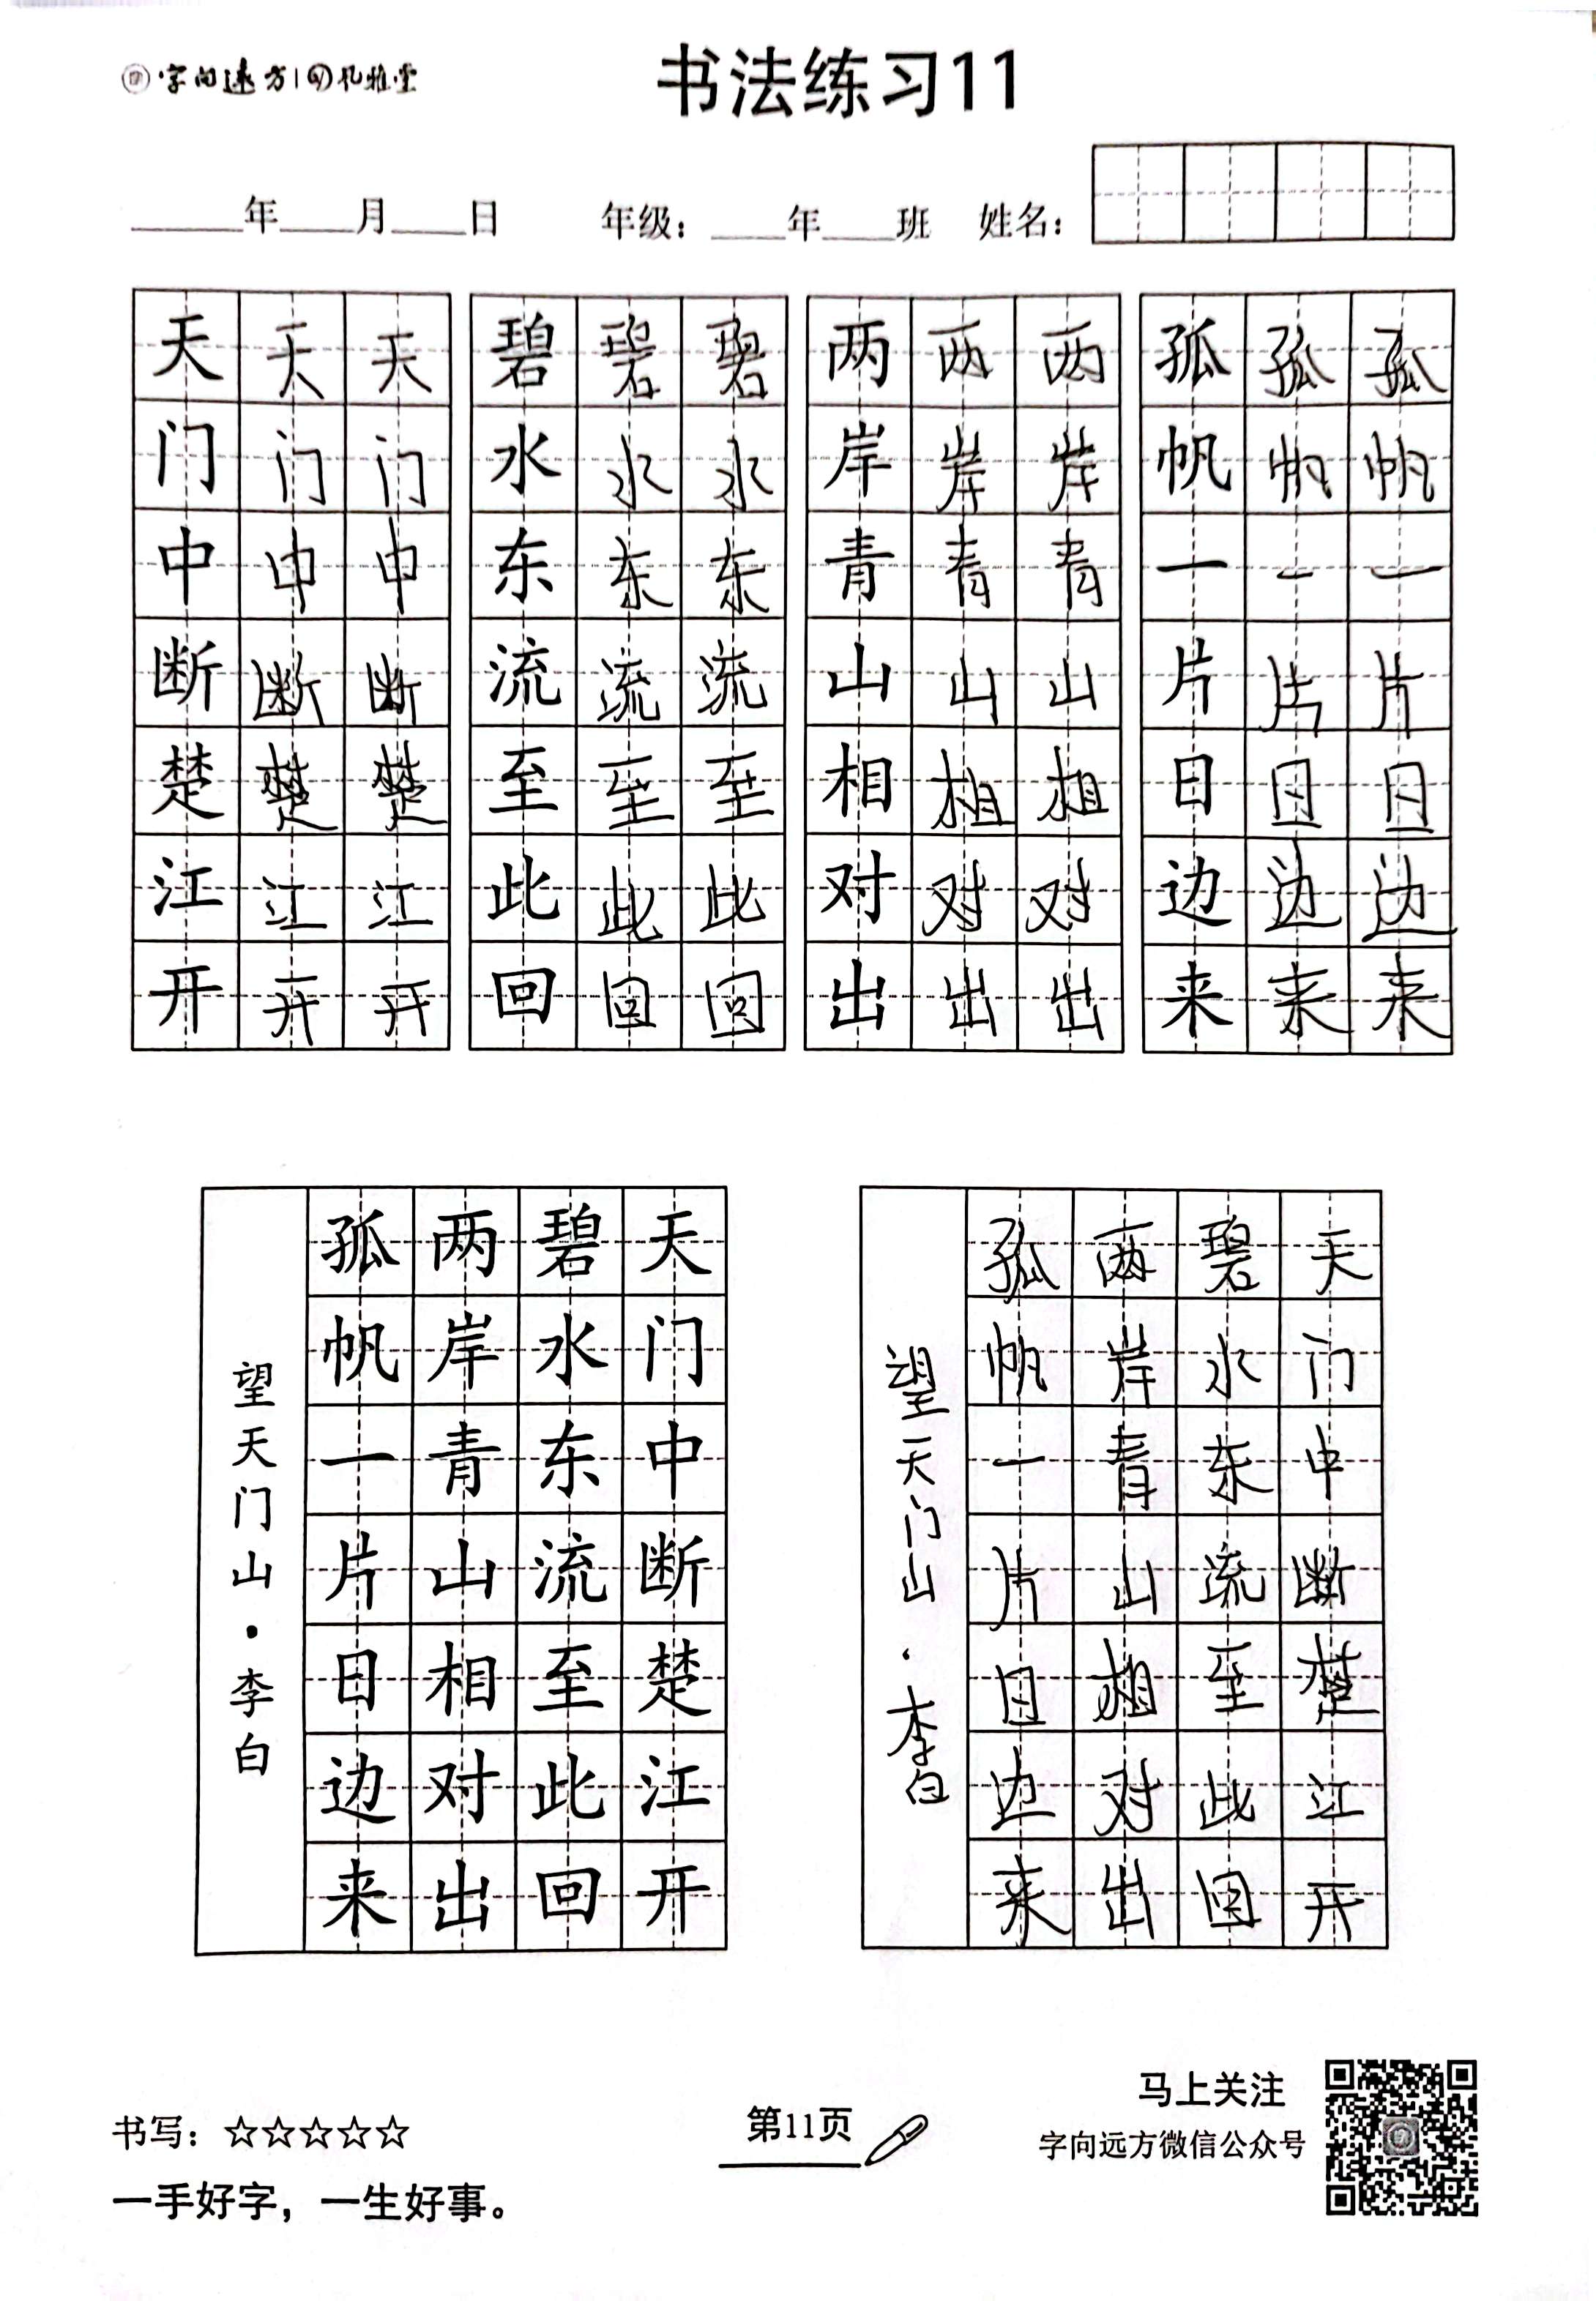 字向远方 孔雅堂
书法练习11
____年____月____日 年级：____年____班 姓名：
天天天 碧碧碧 两两两 孤孤孤
门门门 水水水 岸岸岸 帆帆帆
中中中 东东东 青青青 一一一
断断断 流流流 山山山 片片片
楚楚楚 至至至 相相相 日日日
江江江 此此此 对对对 边边边
开开开 回回回 出出出 来来来
天门中断楚江开
碧水东流至此回
两岸青山相对出
孤帆一片日边来
望天门山·李白
天门中断楚江开
碧水东流至此回
两岸青山相对出
孤帆一片日边来
望天门山·李白
书写：☆☆☆☆☆
一手好字，一生好事。
第11页
马上关注
字向远方微信公众号